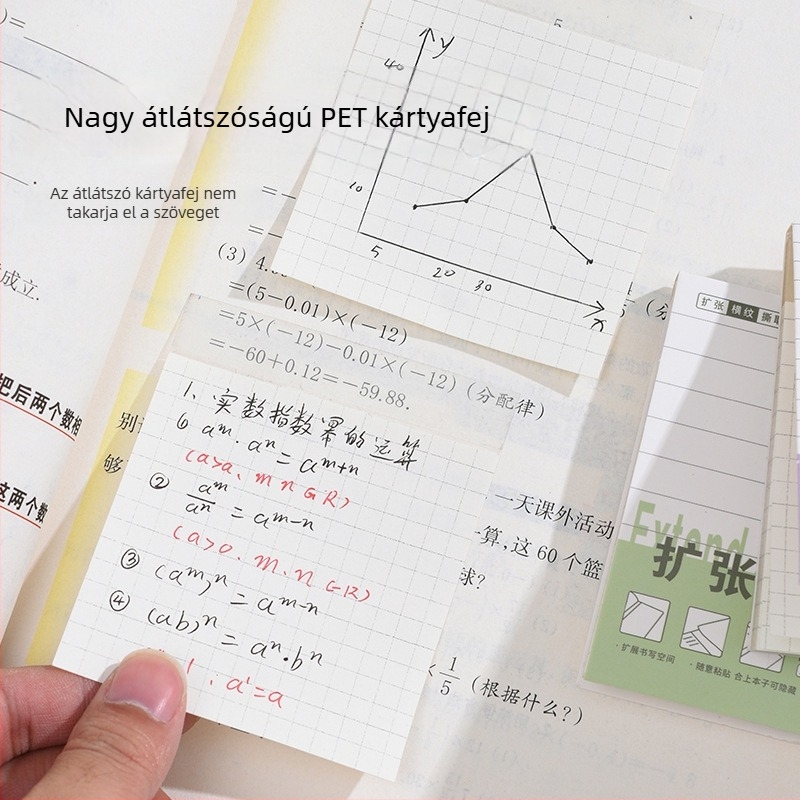 Nagy átlátszóságú PET kártyafej
Az átlátszó kártyafej nem
takarja el a szöveget
5
y
40
10
5
20
30
x
成立.
(3) 4.
=(5−0.01)×(−12)
=5×(−12)−0.01×(−12) (分配律)
=−60+0.12=−59.88.
把后两个数相
这两个数
别
够
1、实数指数幂的运算
① aᵐ·aⁿ=aᵐ⁺ⁿ
(a>a、m n ∈ R)
② aᵐ/aⁿ = aᵐ⁻ⁿ
(a>0、m、n ∈R)
③ (aᵐ)ⁿ = aᵐ⁻ⁿ
④ (ab)ⁿ = aⁿ·bⁿ
a¹=a
一天课外活动
算,这 60 个篮
球?
1/5 (根据什么?)
扩张 横纹 撕取
Extend
扩张
·扩展书写空间
·随意粘贴
合上本子可隐藏